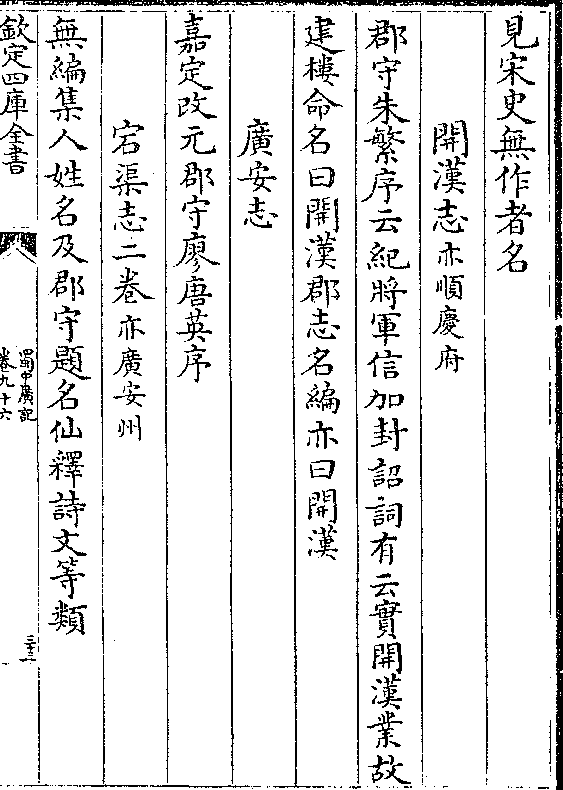 見宋史無作者名
開漢志亦順慶府
郡守朱繁序云紀將軍信加封詔詞有云實開漢業故
建樓命名曰開漢郡志名編亦曰開漢
廣安志
嘉定改元郡守廖唐英序
宕渠志二卷亦廣安州
無編集人姓名及郡守題名仙釋詩文等類
欽定四庫全書
蜀中廣記
卷九十六
三十二